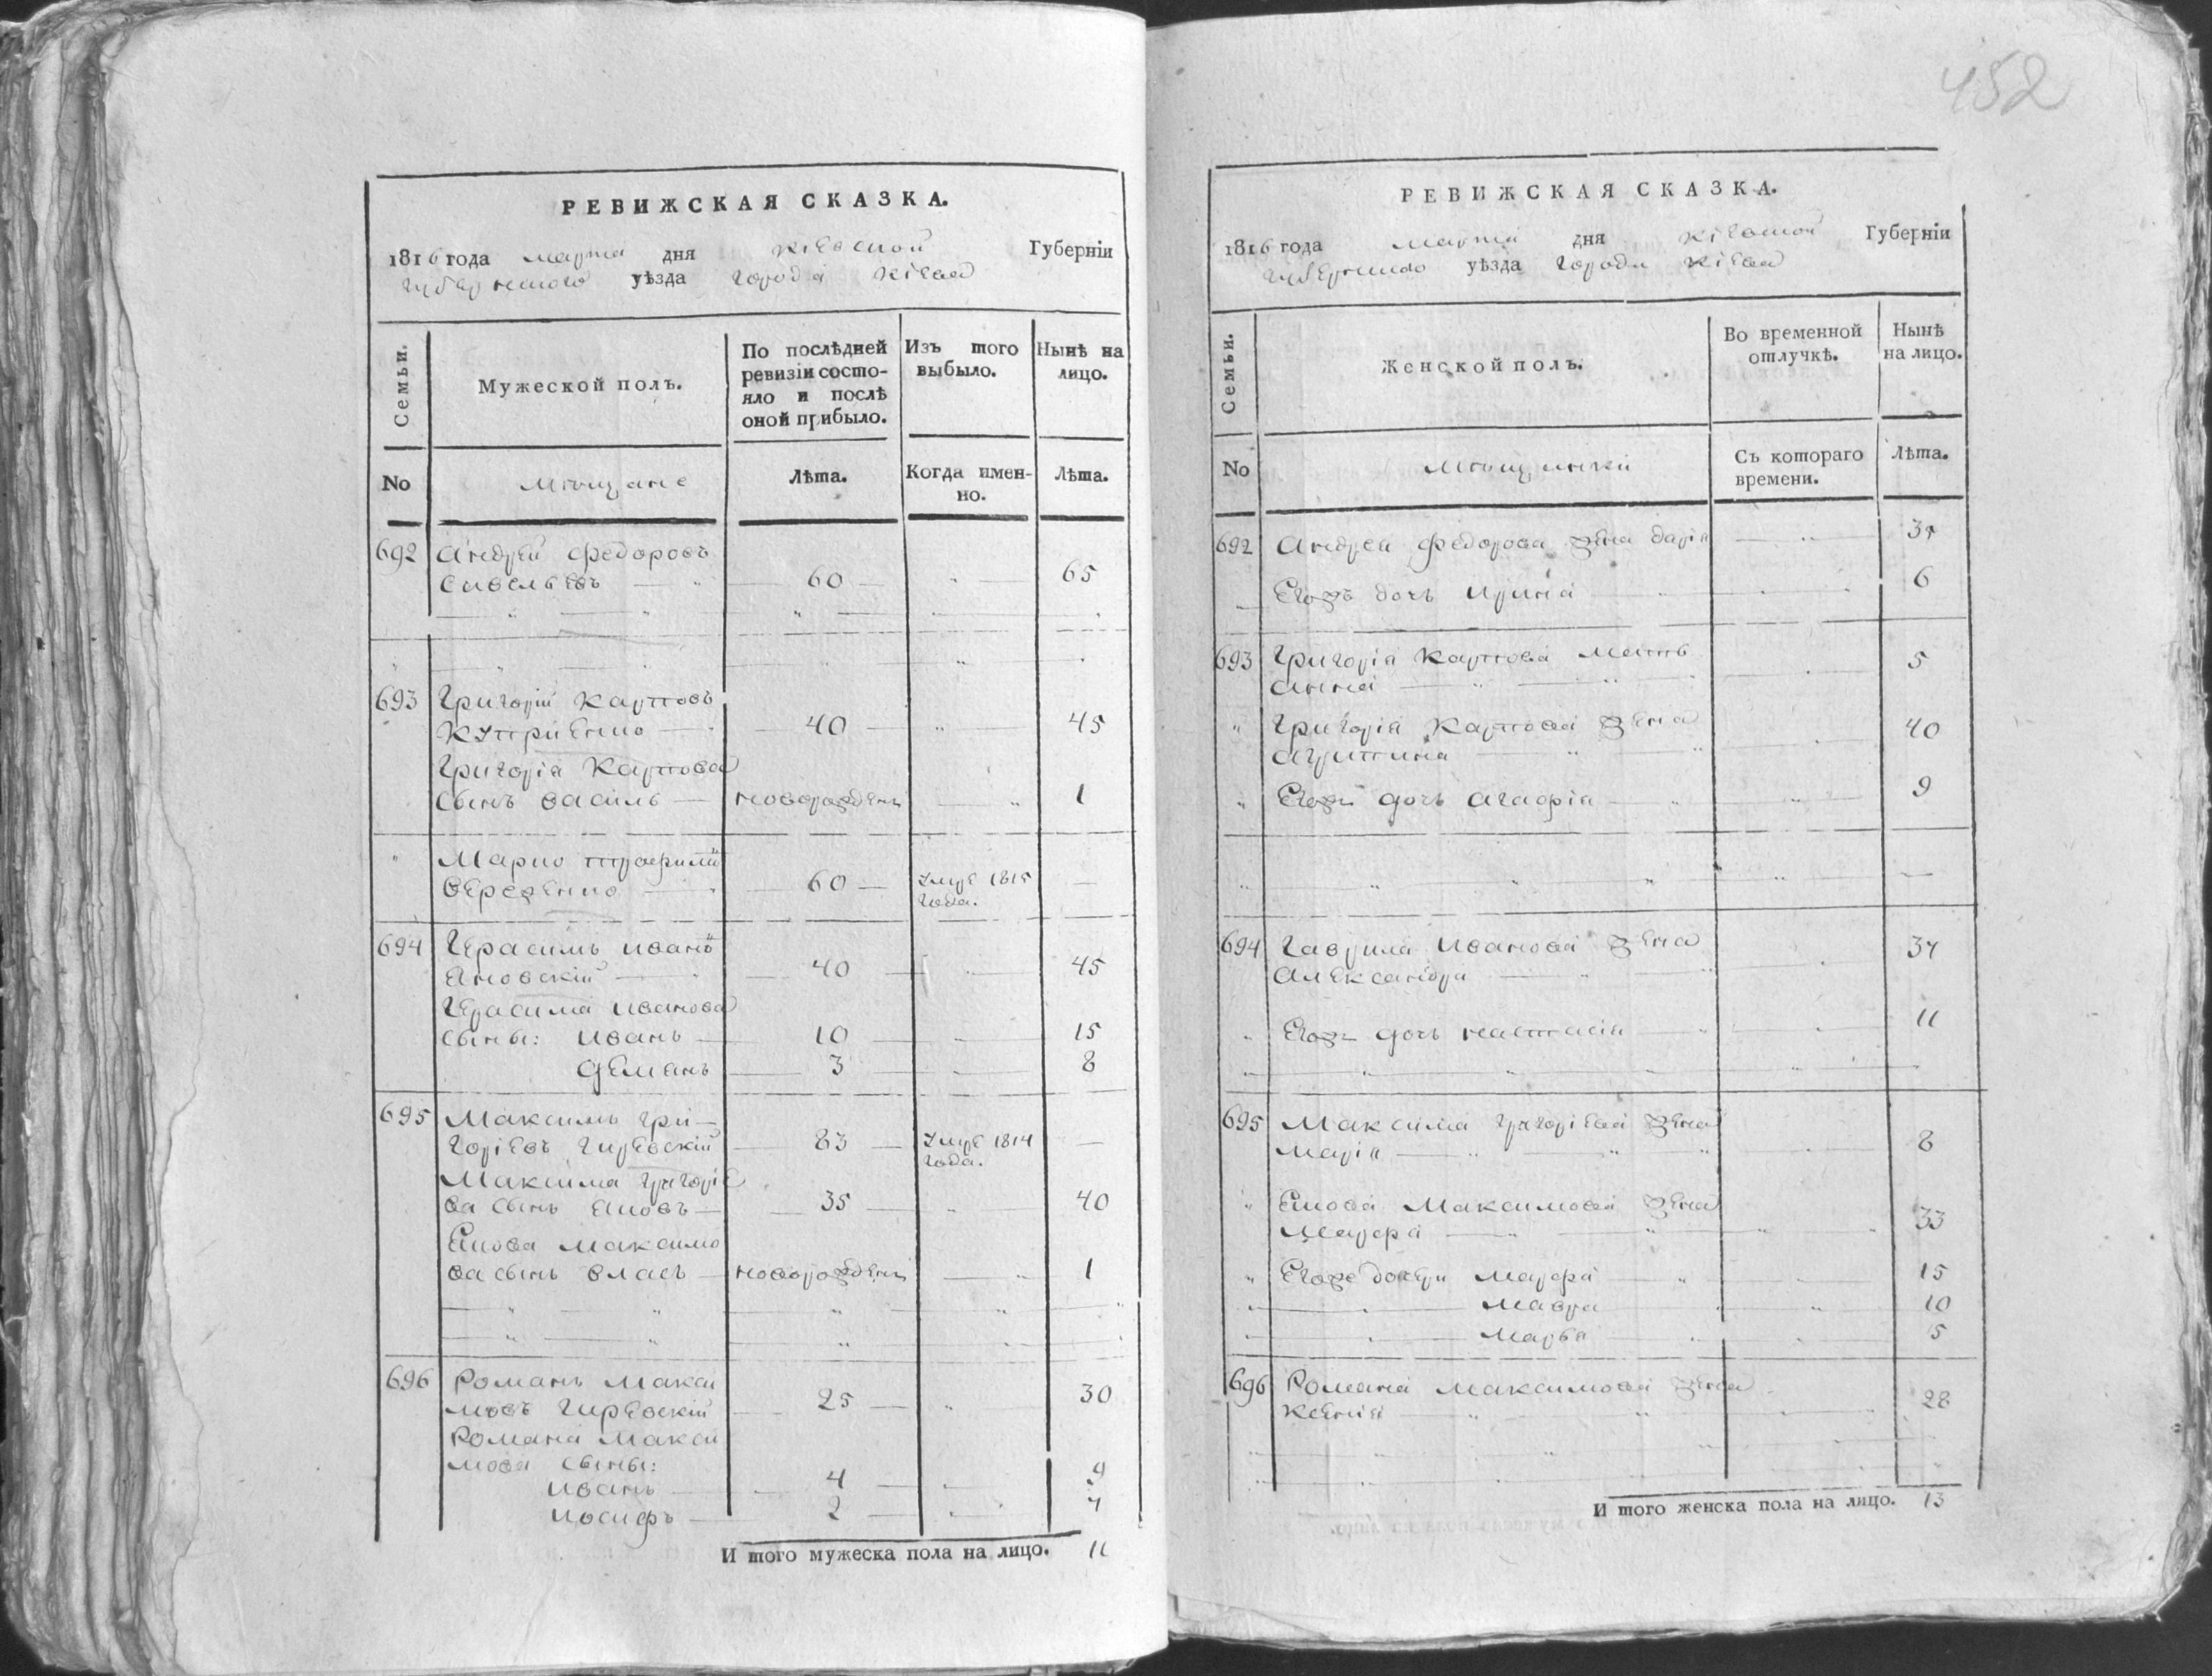 РЕВИЖСКАЯ СКАЗКА.
1816 года марта дня Кіевской Губерніи
Губернскаго уѣзда города Кіева
Семьи.
Мужеской полъ.
По послѣдней ревизіи состояло и послѣ оной прибыло.
Изъ того выбыло.
Нынѣ на лицо.
No
Мѣщане
Лѣта.
Когда именно.
Лѣта.
692 Андрей Федоровъ
Савельевъ 60 65
693 Григорій Карповъ
Купріенко 40 45
Григорія Карпова
сынъ Василь новорожденъ 1
Марко Трофимо
Верезенко 60 умре 1815
года.
694 Герасимъ Ивано
Яновскій 40 45
Герасима Иванова
сыны: Иванъ 10 15
Демянъ 3 8
695 Максимъ Гри-
горіевъ Гиревскій 83 умре 1814
года.
Максима Григоріе
ва сынъ Яковъ 35 40
Якова Максимо
ва сынъ Власъ новорожденъ 1
696 Романъ Макси
мовъ Гиревскій 25 30
Романа Макси
мова сыны:
Иванъ 4 9
Иосифъ 2 7
И того мужеска пола на лицо. 11
452
РЕВИЖСКАЯ СКАЗКА.
1816 года марта дня Кіевской Губерніи
Губернскаго уѣзда города Кіева
Семьи.
Женской полъ.
Во временной отлучкѣ.
Нынѣ на лицо.
No
Мѣщанки
Съ котораго времени.
Лѣта.
692 Андрея Федорова жена Дарія
Егожъ дочь Ирина 6
693 Григорія Карпова мать 5
Анна
Григорія Карпова жена 40
Агрипина
Егожъ дочь Агафія 9
694 Гаврила Иванова жена
Александра
Егожъ дочь Настасія 11
695 Максима Григоріева жена
Марія 8
Якова Максимова жена
Марфа 33
Егоже дочери Марфа 15
Мавра 10
Марья 5
696 Романа Максимова жена
Ксенія 28
И того женска пола на лицо. 13